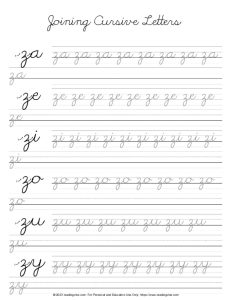 Joining Cursive Letters
za za za za za za za za za
za
ze ze ze ze ze ze ze ze ze ze
ze
zi zi zi zi zi zi zi zi zi zi
zi
zo zo zo zo zo zo zo zo zo
zo
zu zu zu zu zu zu zu zu zu
zu
zy zy zy zy zy zy zy zy zy
zy
For Personal and Education Use Only.